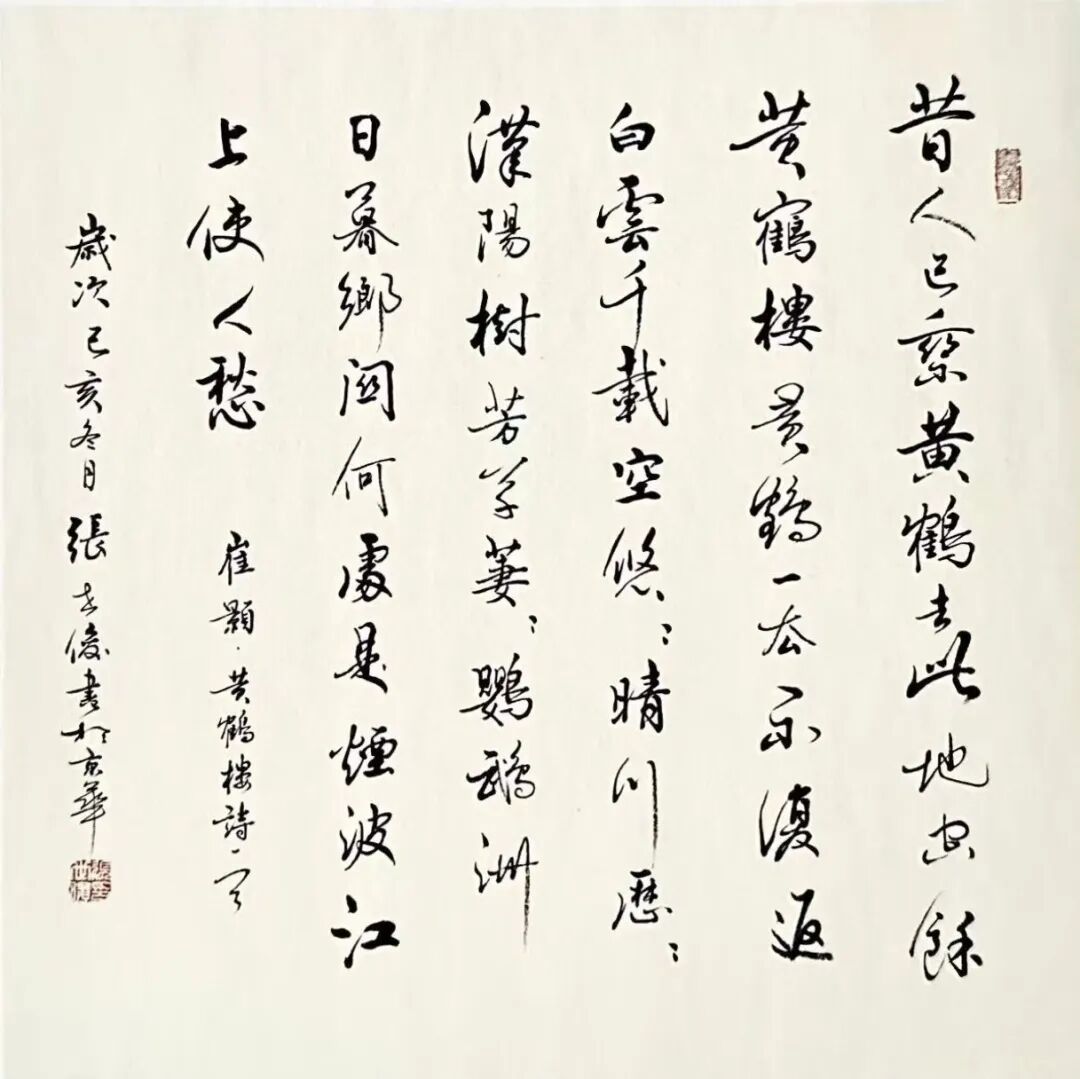 昔人已乘黃鶴去此地空餘
黃鶴樓黃鶴一去不復返
白雲千載空悠〻晴川歷〻
漢陽樹芳草萋〻鸚鵡洲
日暮鄉關何處是煙波江
上使人愁
崔顥·黃鶴樓詩一首
歲次己亥冬月張世俊書於京華